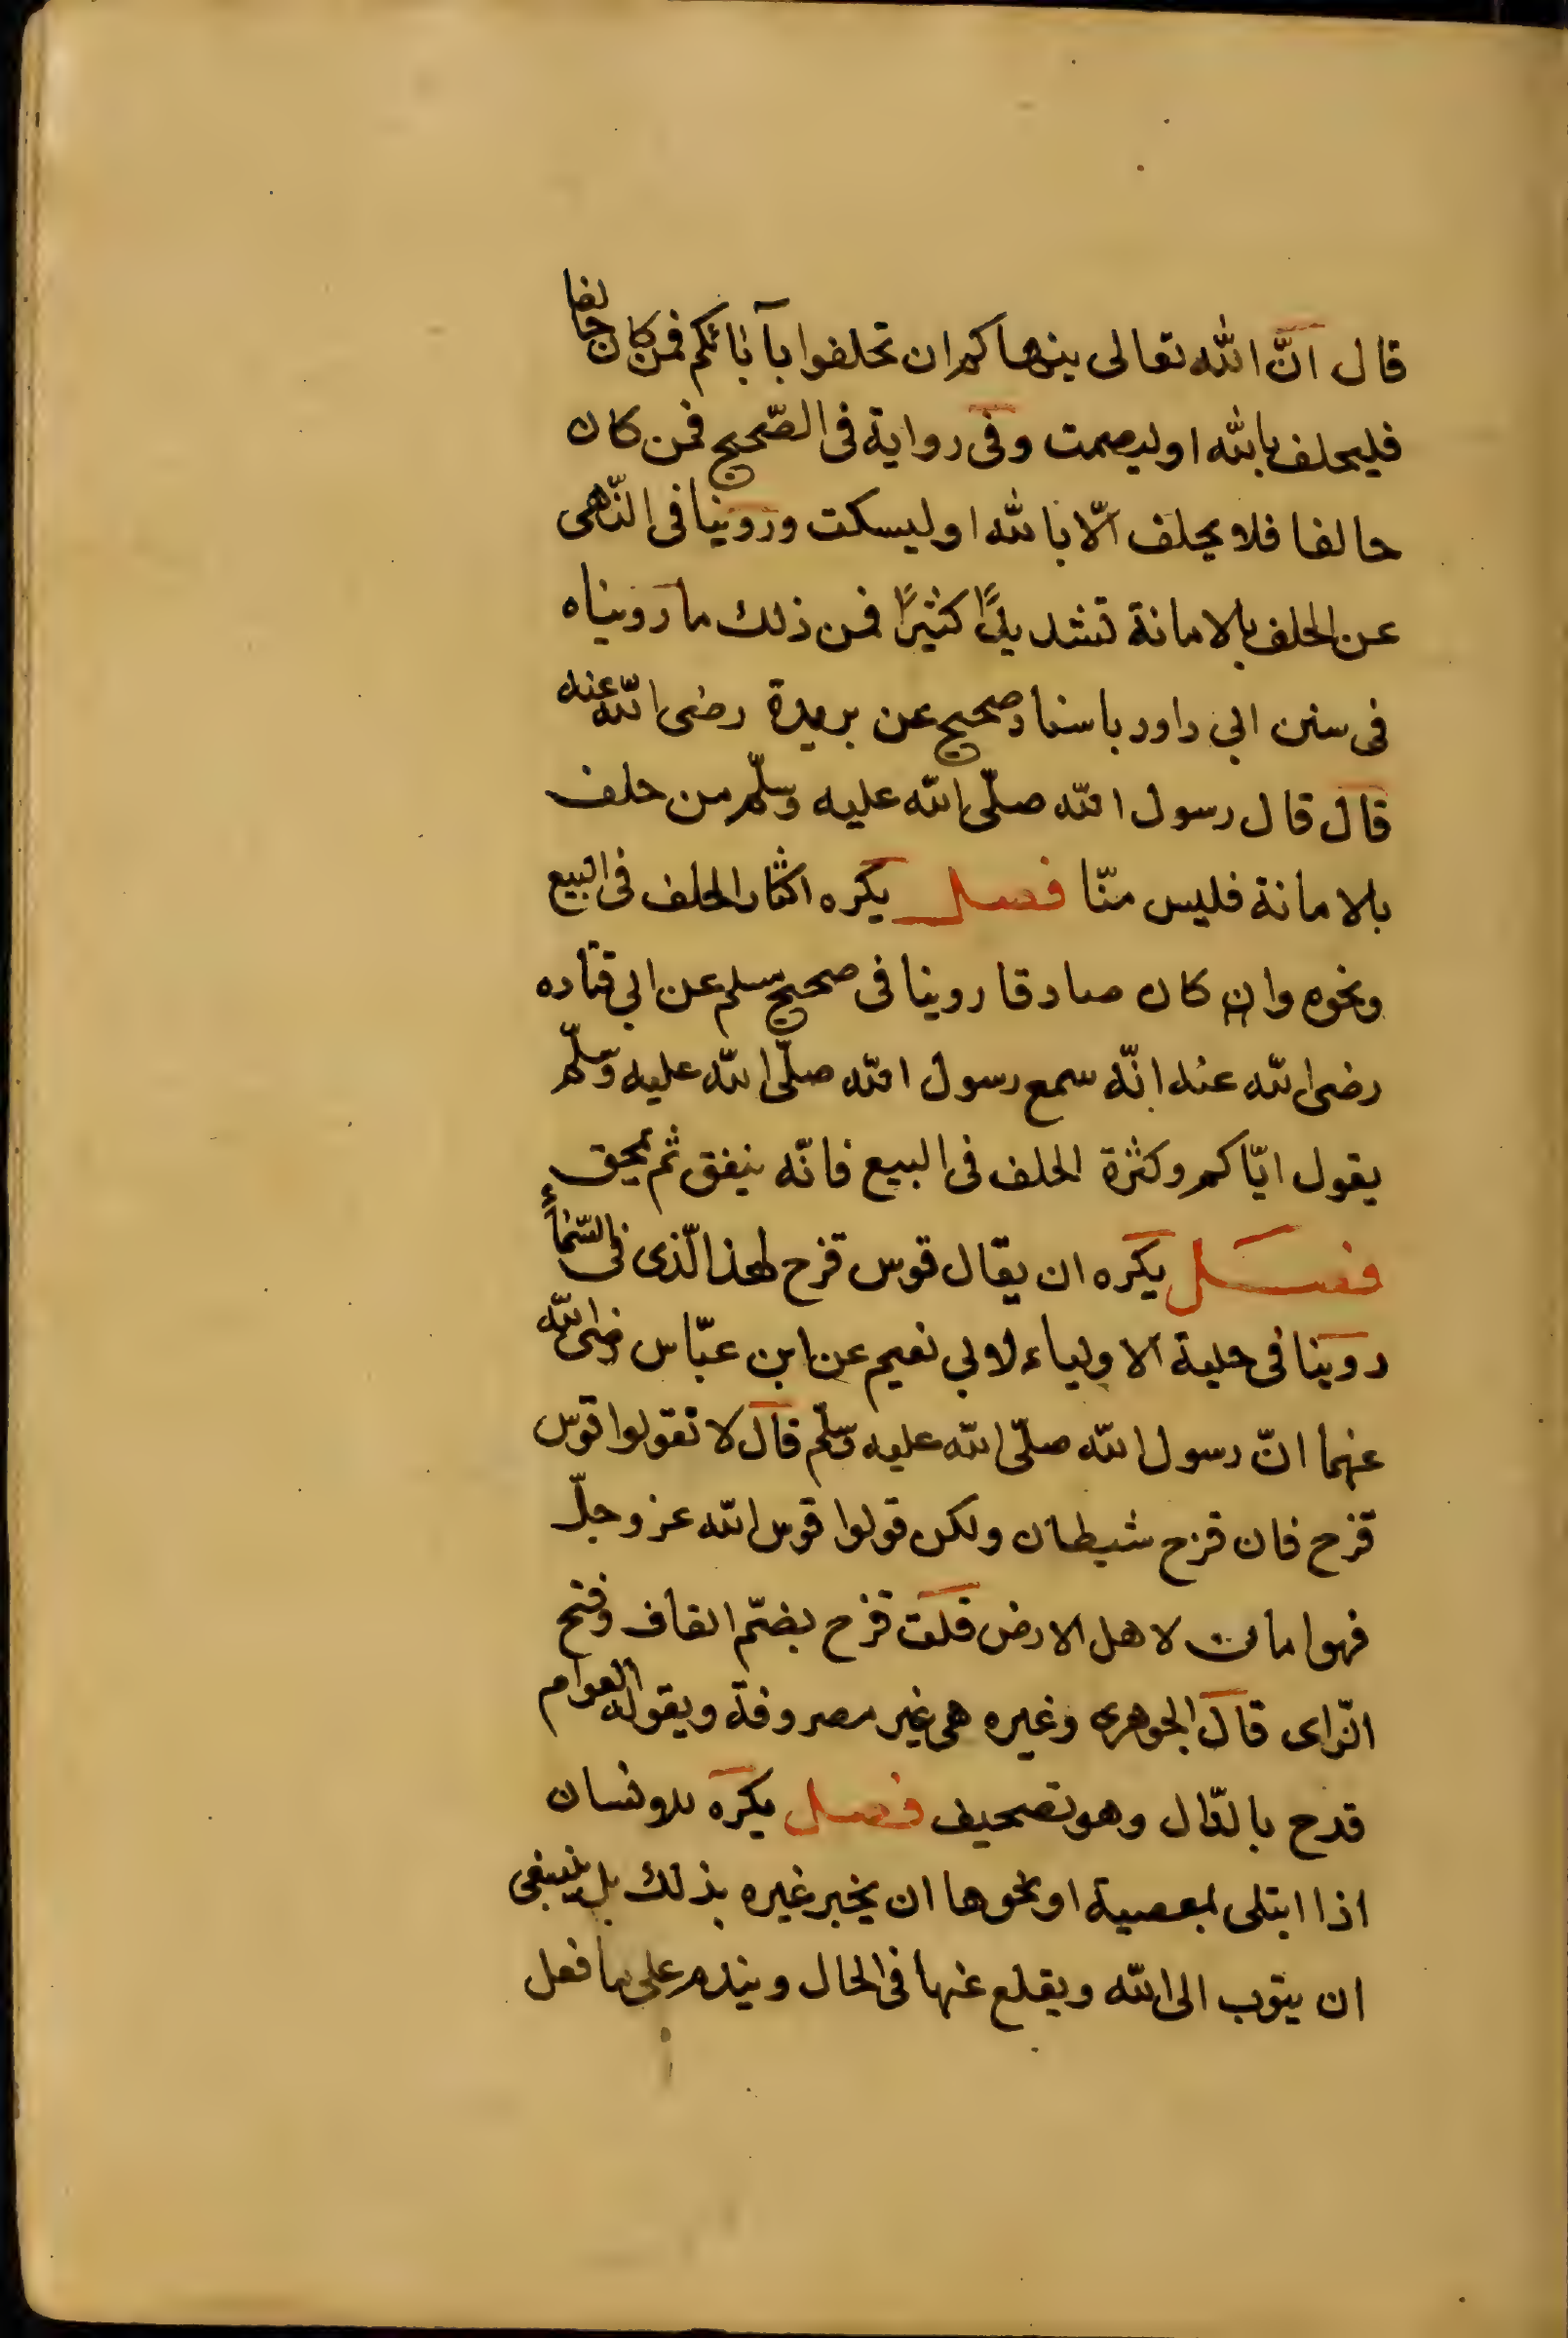 قال انّ الله تعالى ينهاكم ان تحلفوا بآبائكم فمن كان حالفا
فليحلف بالله او ليصمت وفى رواية فى الصّحيح فمن كان
حالفا فلا يحلف الّا بالله او ليسكت وروينا فى النّهى
عن الحلف بالامانة تشديدًا كثيرًا فمن ذلك ما رويناه
فى سنن ابي داود باسناد صحيح عن بريدة رضى الله عنه
قال قال رسول الله صلّى الله عليه وسلّم من حلف
بالامانة فليس منّا فصل يكره اكثار الحلف فى البيع
ونحوه وان كان صادقا روينا فى صحيح مسلم عن ابي قتاده
رضى الله عنه انّه سمع رسول الله صلّى الله عليه وسلّم
يقول ايّاكم وكثرة الحلف فى البيع فانّه ينفق ثم يمحق
فصل يكره ان يقال قوس قزح لهذا الّذى فى السّماءِ
روينا فى حلية الاولياء لابي نعيم عن ابن عبّاس رضى الله
عنهما انّ رسول الله صلّى الله عليه وسلّم قال لا تقولوا قوس
قزح فان قزح شيطان ولكن قولوا قوس الله عز وجلّ
فهو امان لاهل الارض قلت قزح بضمّ القاف وفتح
الزّاى قال الجوهرى وغيره هى غير مصروفة ويقوله العوام
قدح بالدّال وهو تصحيف فصل يكره للانسان
اذا ابتلى بمعصية او نحوها ان يخبر غيره بذلك بل ينبغى
ان يتوب الى الله ويقلع عنها فى الحال ويندم على ما فعل